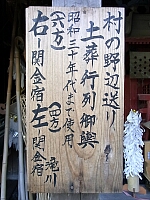 村の野辺送り
土葬行列御輿
昭和三十年代まで使用
(六方)
右ー関金宿
左ー(四方)関金宿
滝川